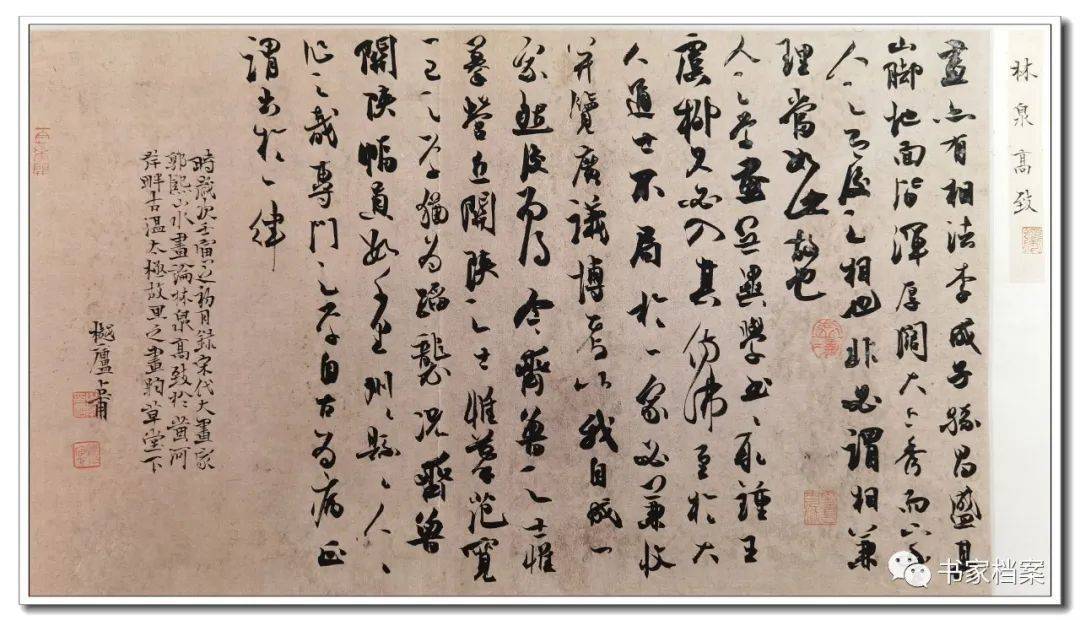 林泉高致
畫亦有相法李成子孫昌盛其
山脚地面皆渾厚闊大上秀而下
人之有後之相也非必謂相兼
理當如此故也
人之學畫無異學書今取鍾王
虞柳久必入其仿佛至於大
人達士不局於一家必兼收
并覽廣議博考以我自成一
家然後為得今齊魯之士惟
摹營丘關陝之士惟摹范寬
一己之學猶為蹈襲況齊魯
關陝幅員數千里州々縣々人々
作之哉專門之學自古為病正
謂出於一律
時歲次壬寅之初月錄宋代大畫家
郭熙山水畫論林泉高致於黃河
岸畔古溫太極故里之畫韵草堂下
樾廬占甫
书家档案